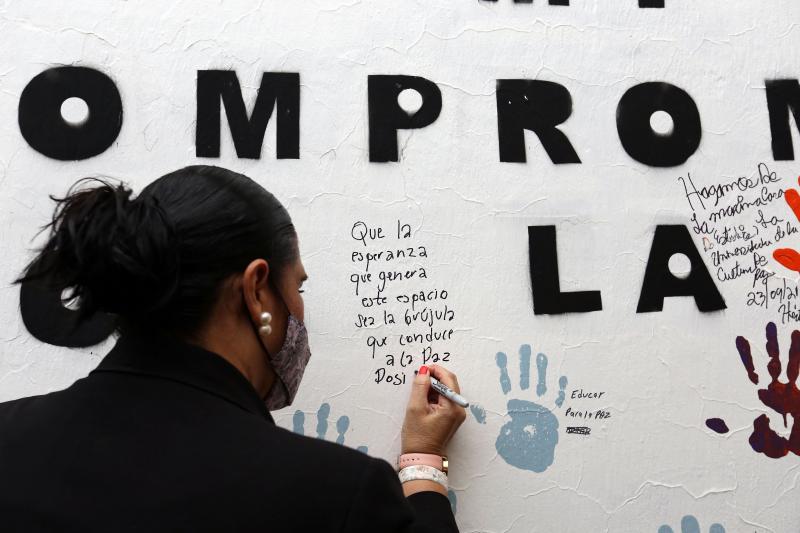 OMPROM
LA
Que la
esperanza
que genera
este espacio
sea la brújula
que conduce
a la Paz
Dosi
Educar
Para la PAZ
Hagamos De
La
La
Universidad
Cultura De
Paz
23/09/21